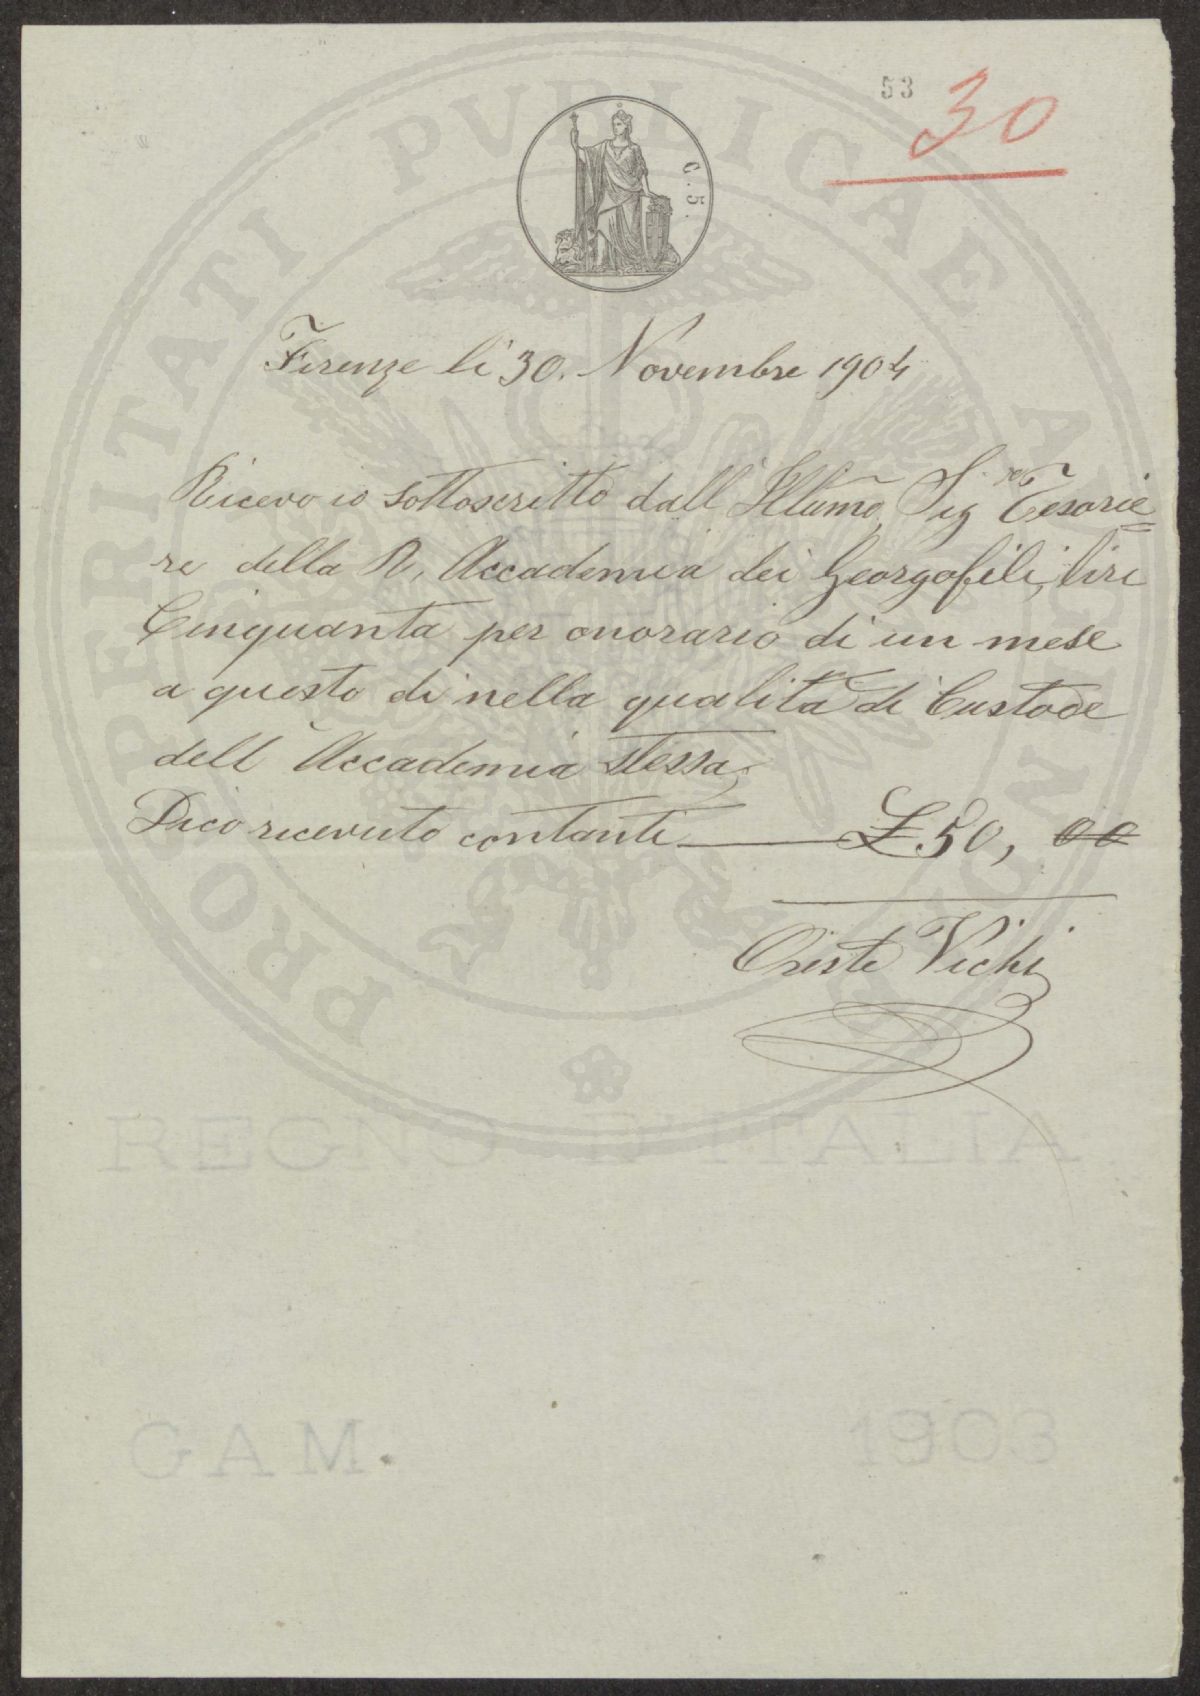 53
30
C. 5.
Firenze li 30. Novembre 1904
Ricevo io sottoscritto dall' Illumo, Sigre Tesorie=
re della R, Accademia dei Georgofili, lire
Cinquanta per onorario di un mese
a questo dì nella qualità di Custode
dell' Accademia stessa,
Dico ricevuto contanti £ 50, 00
Oreste Vichi
PROPERITATI PVBLICAE AVGENDAE
REGNO D'ITALIA
GAM. 1903